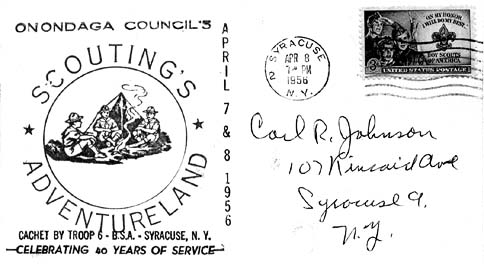 ONONDAGA COUNCIL'S
SCOUTING'S
ADVENTURELAND
APRIL 7 & 8 1956
CACHET BY TROOP 6 - B.S.A. - SYRACUSE, N. Y.
CELEBRATING 40 YEARS OF SERVICE
SYRACUSE
2
APR 8
7 - PM
1956
N. Y.
ON MY HONOR
I WILL DO MY BEST
BOY SCOUTS
OF AMERICA
3¢
UNITED STATES POSTAGE
Carl R. Johnson
107 Kincaid Ave
Syracuse 9.
N.Y.